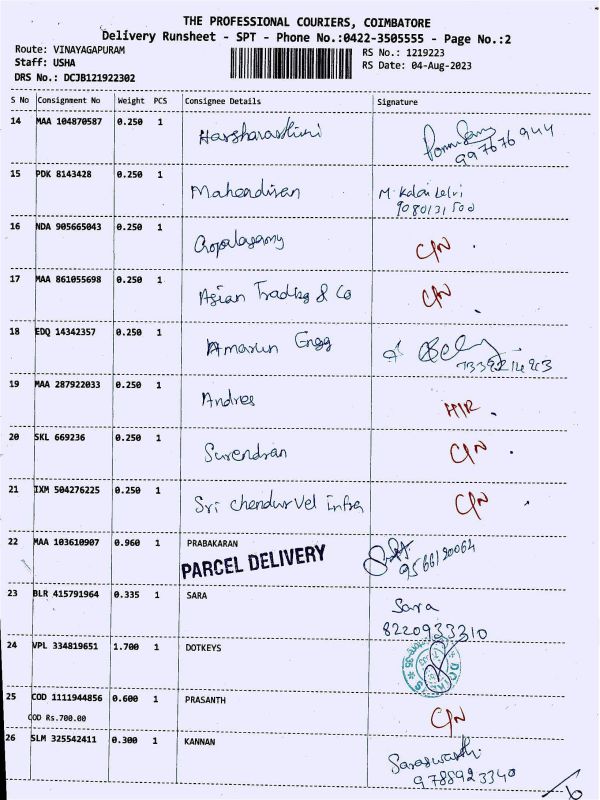 THE PROFESSIONAL COURIERS, COIMBATORE
Delivery Runsheet - SPT - Phone No.:0422-3505555 - Page No.:2
Route: VINAYAGAPURAM
Staff: USHA
DRS No.: DCJB121922302
RS No.: 1219223
RS Date: 04-Aug-2023
S No Consignment No Weight PCS Consignee Details Signature
14 MAA 104870587 0.250 1 Harshavarthini
15 PDK 8143428 0.250 1 Mahendiran M. Kalai selvi
9080131500
16 NDA 905665043 0.250 1 Gopalasamy C/N
17 MAA 861055698 0.250 1 Asian Trading & Co C/N
18 EDQ 14342357 0.250 1 Amarun Engg
19 MAA 287922033 0.250 1 Andres
20 SKL 669236 0.250 1 Surendran C/N
21 IXM 504276225 0.250 1 Sri chendur Vel infra C/N
22 MAA 103610907 0.960 1 PRABAKARAN
PARCEL DELIVERY 9566120064
23 BLR 415791964 0.335 1 SARA Sara
8220933310
24 VPL 334819651 1.700 1 DOTKEYS
25 COD 1111944856 0.600 1 PRASANTH C/N
COD Rs.700.00
26 SLM 325542411 0.300 1 KANNAN Saraswathi
9788923340